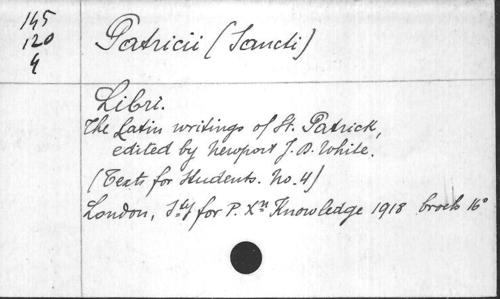 145
120
4
Patricii (Sancti)
Libri.
The Latin writings of St. Patrick,
edited by Newport J. D. White.
(Texts for Students. No. 4)
London, Sty for P. Xn Knowledge 1918 broch 16°